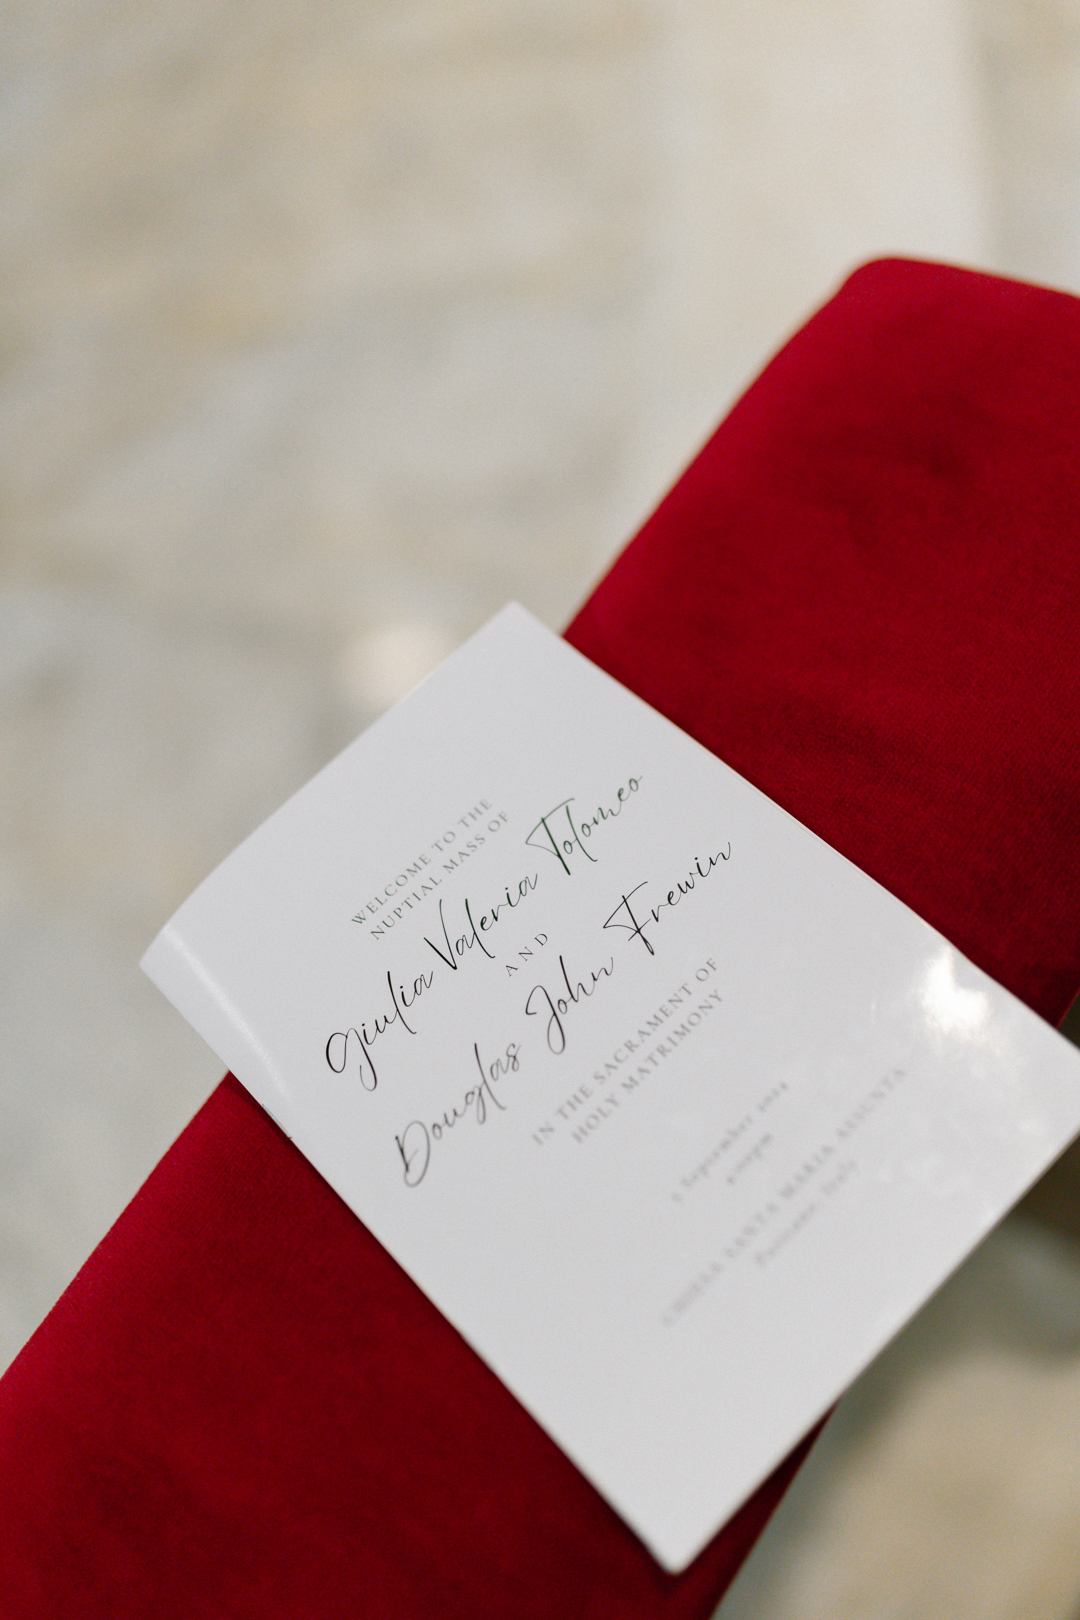 WELCOME TO THE
NUPTIAL MASS OF
Giulia Valeria Tolomeo
AND
Douglas John Frewin
IN THE SACRAMENT OF
HOLY MATRIMONY
September
SANTA MARIA ASSUNTA
Positano, Italy